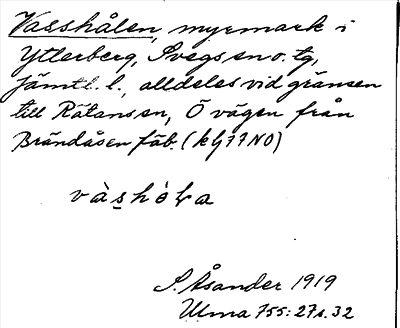 Vasshålen, myrmark i
Ytterberg, Svegs sn o. tg,
Jämtl. l., alldeles vid gränsen
till Rätans sn, Ö vägen från
Brändåsen fäb. (kbl 77 NO)
vàs̲hò̀ɽa
S. Åsander 1919
Ulma 755:27 s. 32